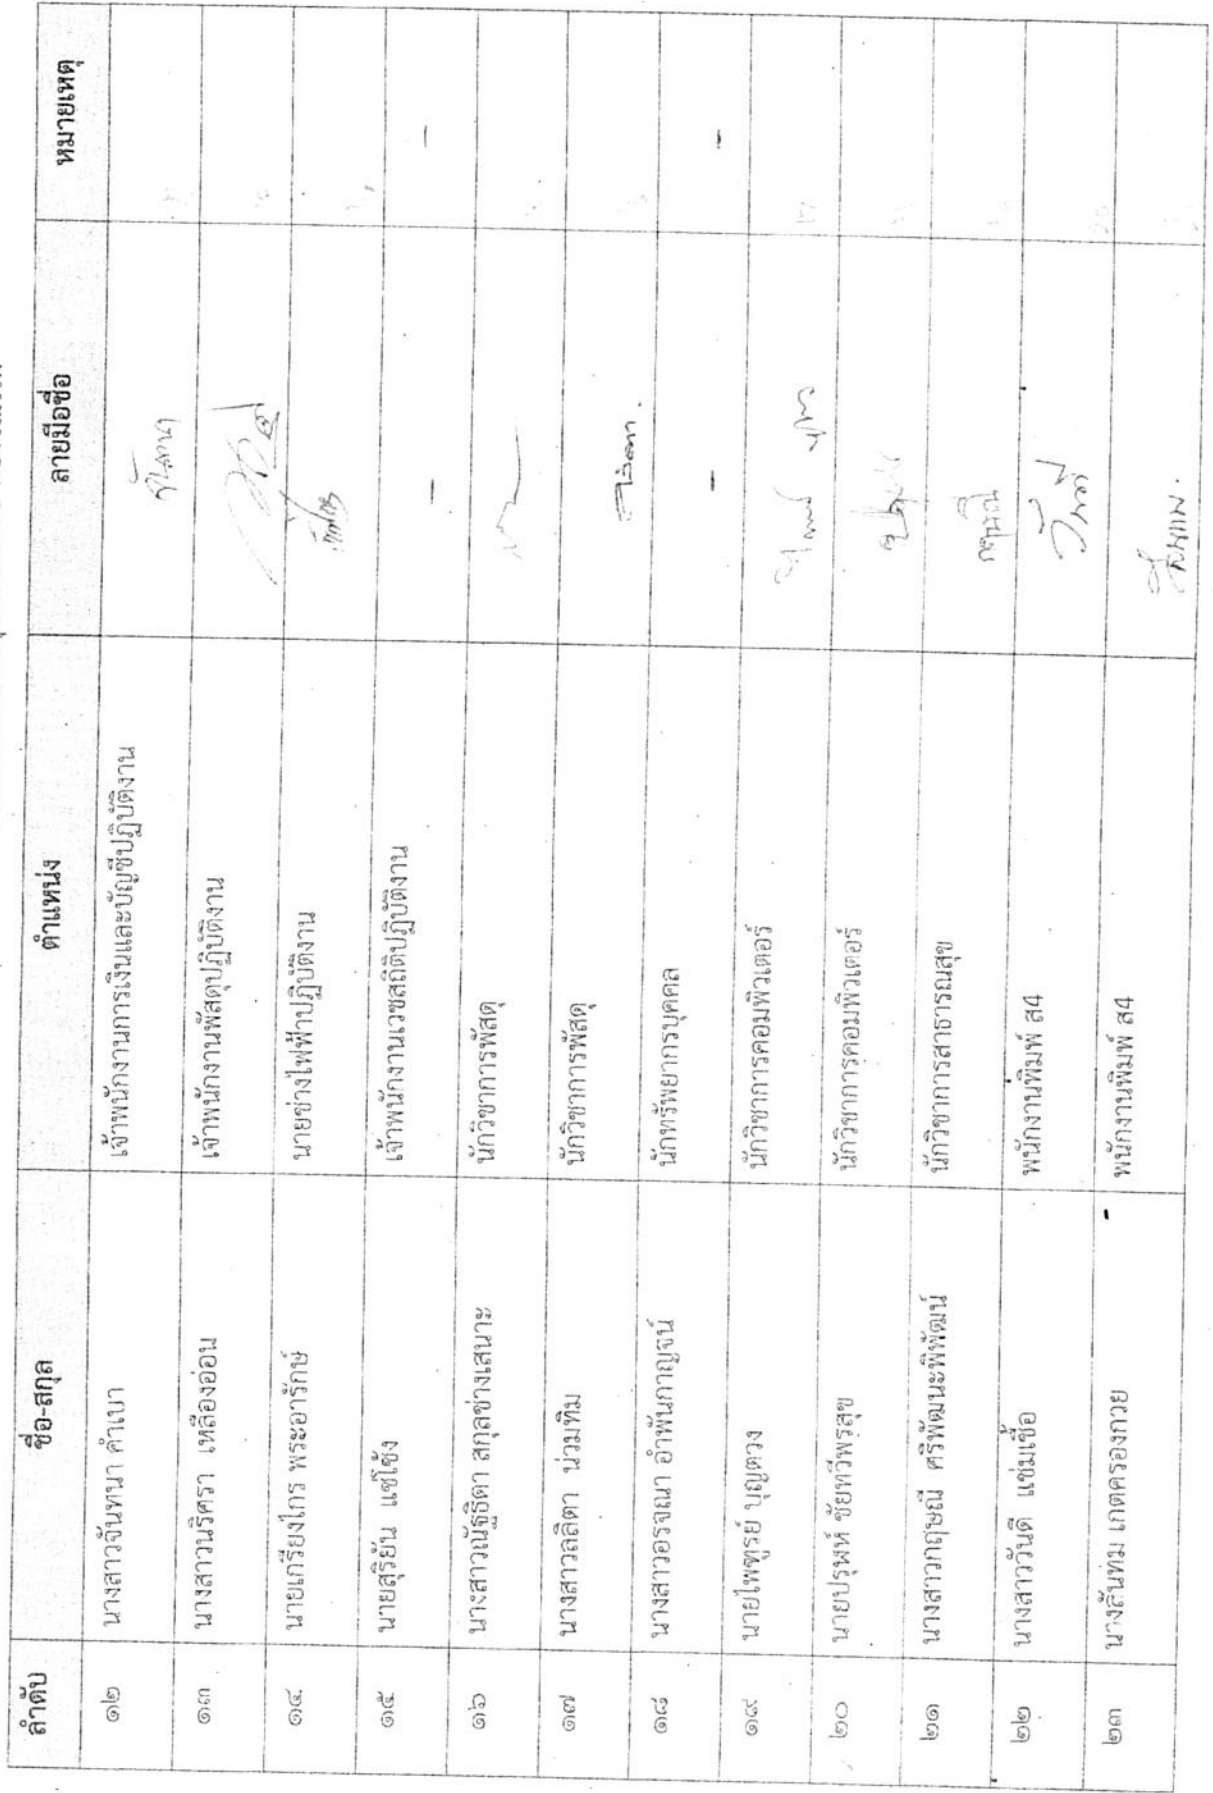 ลำดับ ชื่อ-สกุล ตำแหน่ง ลายมือชื่อ หมายเหตุ
๑๒ นางสาวจันทนา คำเบา เจ้าพนักงานการเงินและบัญชีปฏิบัติงาน
๑๓ นางสาวนริศรา เหลืองอ่อน เจ้าพนักงานพัสดุปฏิบัติงาน
๑๔ นายเกรียงไกร พระอารักษ์ นายช่างไฟฟ้าปฏิบัติงาน
๑๕ นายสุริยัน แซ่โช้ง เจ้าพนักงานเวชสถิติปฏิบัติงาน - -
๑๖ นางสาวณัฐธิดา สกุลช่างเสนาะ นักวิชาการพัสดุ
๑๗ นางสาวลลิตา น่วมทิม นักวิชาการพัสดุ ลลิตา.
๑๘ นางสาวอรจณา อำพันกาญจน์ นักทรัพยากรบุคคล - -
๑๙ นายไพฑูรย์ บุญตวง นักวิชาการคอมพิวเตอร์
๒๐ นายปรุฬห์ ชัยทวีพรสุข นักวิชาการคอมพิวเตอร์
๒๑ นางสาวกฤษณี ศรีพัฒนะพิพัฒน์ นักวิชาการสาธารณสุข กฤษณี
๒๒ นางสาววันดี แช่มเชื้อ พนักงานพิมพ์ ส4 วันดี
๒๓ นางลั่นทม เกตครองกวย พนักงานพิมพ์ ส4